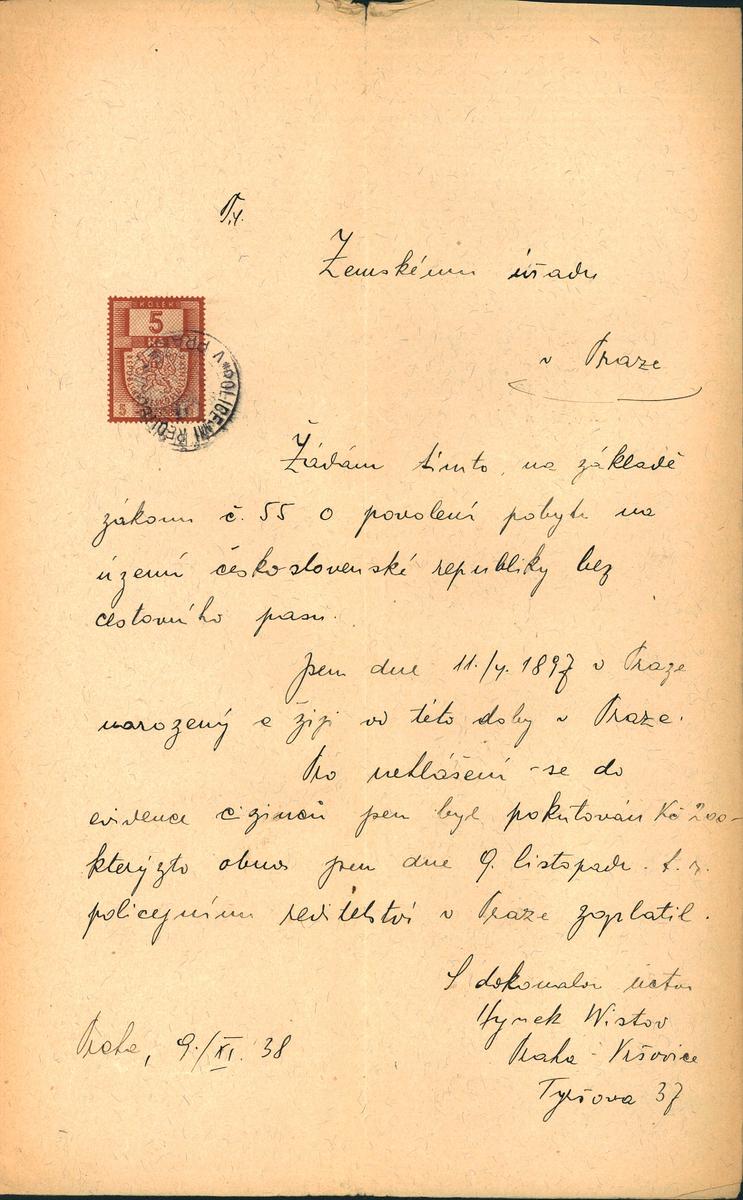 Zemskému úřadu
KOLEK
5
Kč
v Praze
POLICEJNÍ ŘEDITELSTVÍ V PRAZE
Žádám tímto, na základě
zákonu č. 55 o povolení pobytu na
území československé republiky bez
cestovního pasu.
Jsem dne 11./V. 1897 v Praze
narozený a žiji od této doby v Praze.
Pro nehlášení se do
evidence cizinců jsem byl pokutován Kč 200-
kterýžto obnos jsem dne 9. listopadu t. r.
policejnímu ředitelství v Praze zaplatil.
S dokonalou úctou
Hynek Wistov
Praha, 9./XI. 38
Praha - Vršovice
Tyršova 37